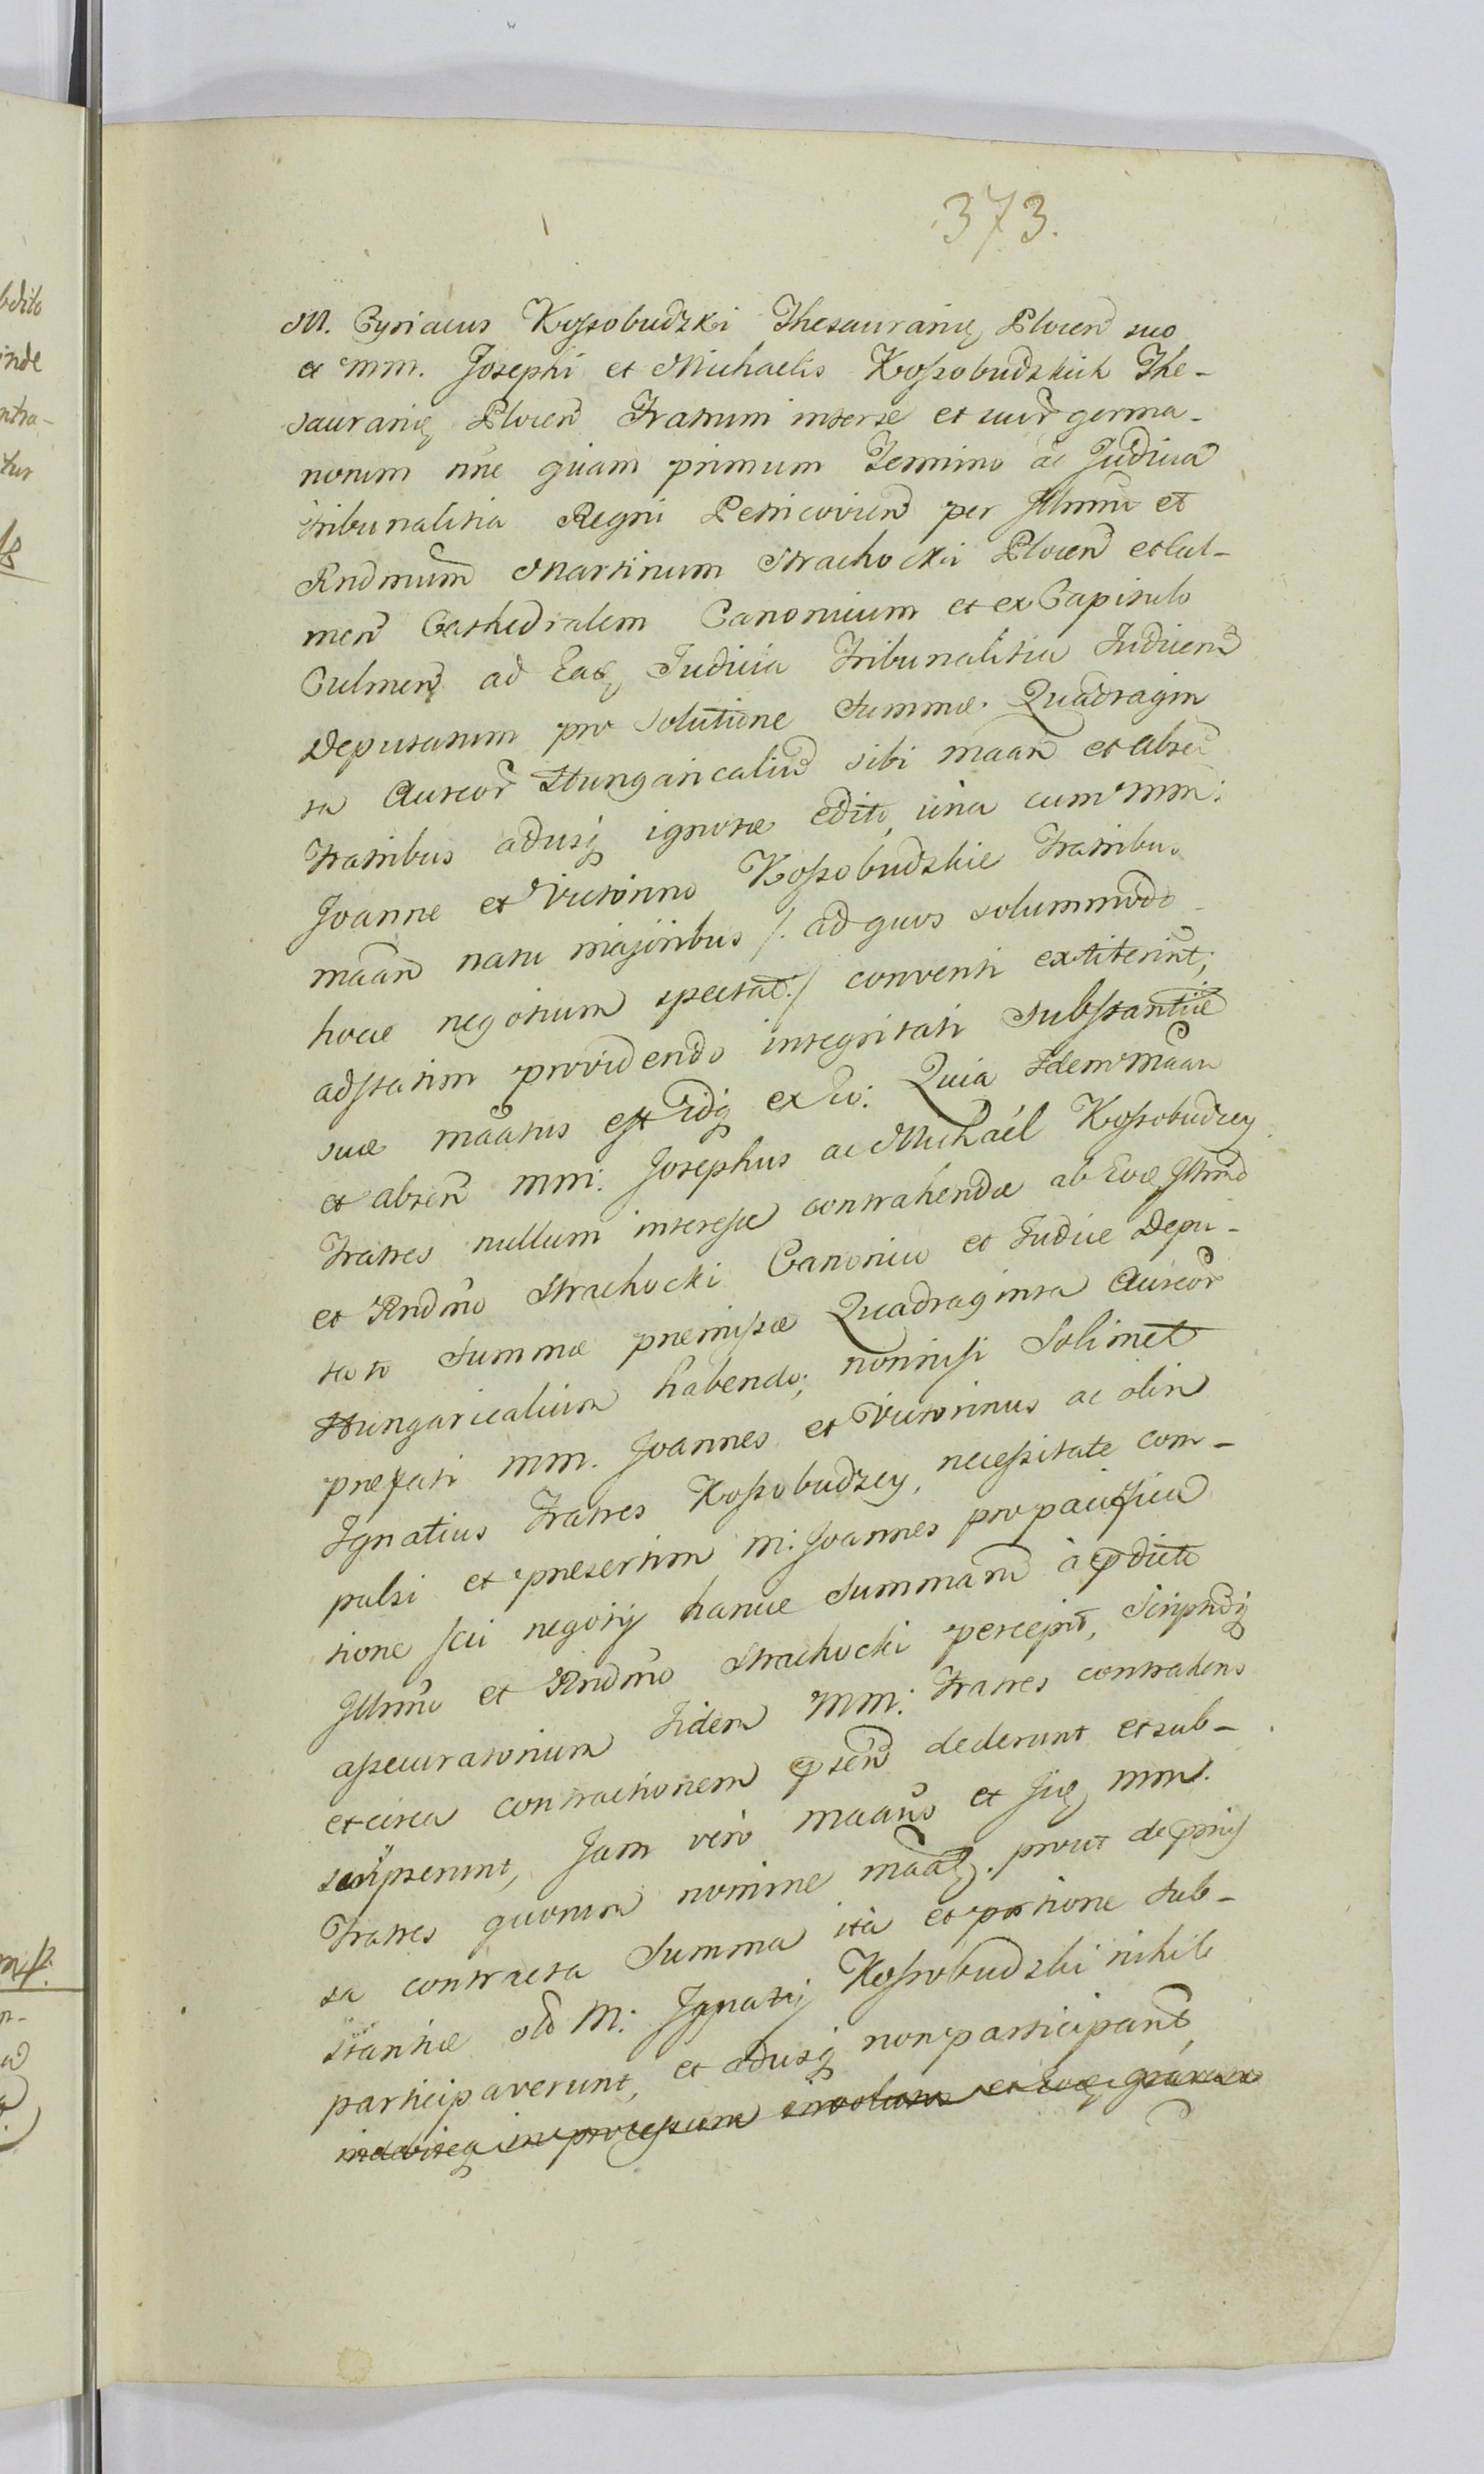 373.
M. Cyriacus Kossobudzki Thesauranię Plocen suo
et mm. Josephi et Michaelis Kossobudzkich The-
sauranię Plocen Fratrum interse et suor germa-
norum nne quam primum Termino ac Judicia
tribunalitia Regni Petricovien per Illmm et
Rndmum Martinum Strachocki Plocen et Cul-
men Cathedralem Canonicum et ex Capitulo
Culmen ad Eaq Judicia Tribunalitia Judicem
Deputatum pro Solutione Summæ Quadragin
ta Aureor Hungaricaliu sibi maan et absen
Fratribus adusq ignotæ edito, una cum mm:
Joanne et Victorino Kossobudzkie Fratribus
maan natu majoribus /. ad quos solummodo
hocce negotium spectat ./ conventi extiterint;
adstatim providendo integritati Substantiæ
suæ maatus est idq ex Eo: Quia Idem maan
et absen mm: Josephus ac Michaël Kossobudzcy
Fratres nullum interesse contrahendæ ab Eoq Illmo
et Rndmo Strachocki Canonico et Judice Depu-
tato Summæ præmissæ Quadraginta Aureor
Hungaricalium habendo; nonnisi Solimet
præfati mm. Joannes et Victorinus ac olim
Ignatius Fratres Kossobudzcy, necessitate com-
pulsi et præsertim m: Joannes pro pacifica
tione sui negotij hance Summam à pdicto
Illmo et Rndmo Strachocki percepit, Scriptuq
assecuratorium Iidem mm: Fratres contrahens
et circa contractionem psen dederunt et sub-
scripserunt, Jam vero maans et Jiq mm.
Fratres quorum nomine maaq. prout de pmij
sa contracta Summa ita et portione Sub-
stantiæ old M: Ignatij Kossobudzki nihil
participaverunt, et adusq non participant,
indebiteq in processum involutos et Eoq